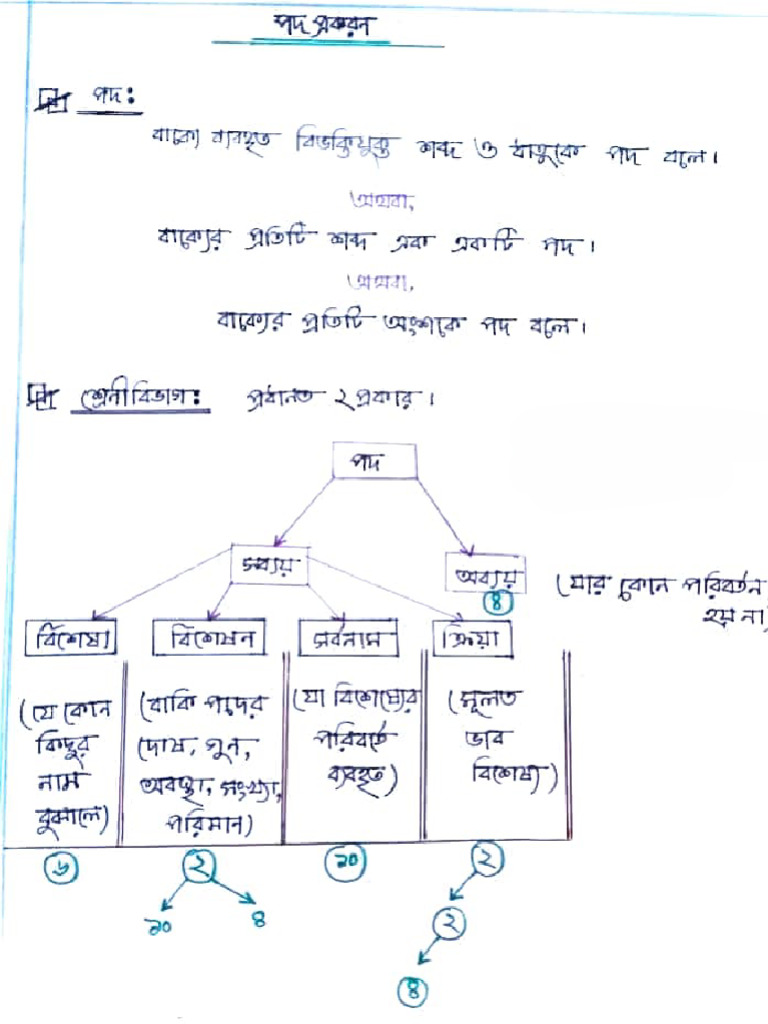 পদ প্রকরন
পদ:
বাক্যে ব্যবহৃত বিভক্তিযুক্ত শব্দ ও ধাতুকে পদ বলে।
অথবা,
বাক্যের প্রতিটি শব্দ এক একটি পদ।
অথবা,
বাক্যের প্রতিটি অংশকে পদ বলে।
শ্রেনীবিভাগ: প্রধানত ২প্রকার।
পদ
সব্যয় অব্যয় (যার কোন পরিবর্তন
৪ হয় না)
বিশেষ্য বিশেষন সর্বনাম ক্রিয়া
(যে কোন (বাকি পদের (যা বিশেষ্যের (মূলত
কিছুর দোষ, গুন, পরিবর্তে ভাব
নাম অবস্থা, সংখ্যা, ব্যবহৃত) বিশেষ্য)
বুঝালে) পরিমান)
৬ ২ ১০ ২
১০ ৪ ২
৪